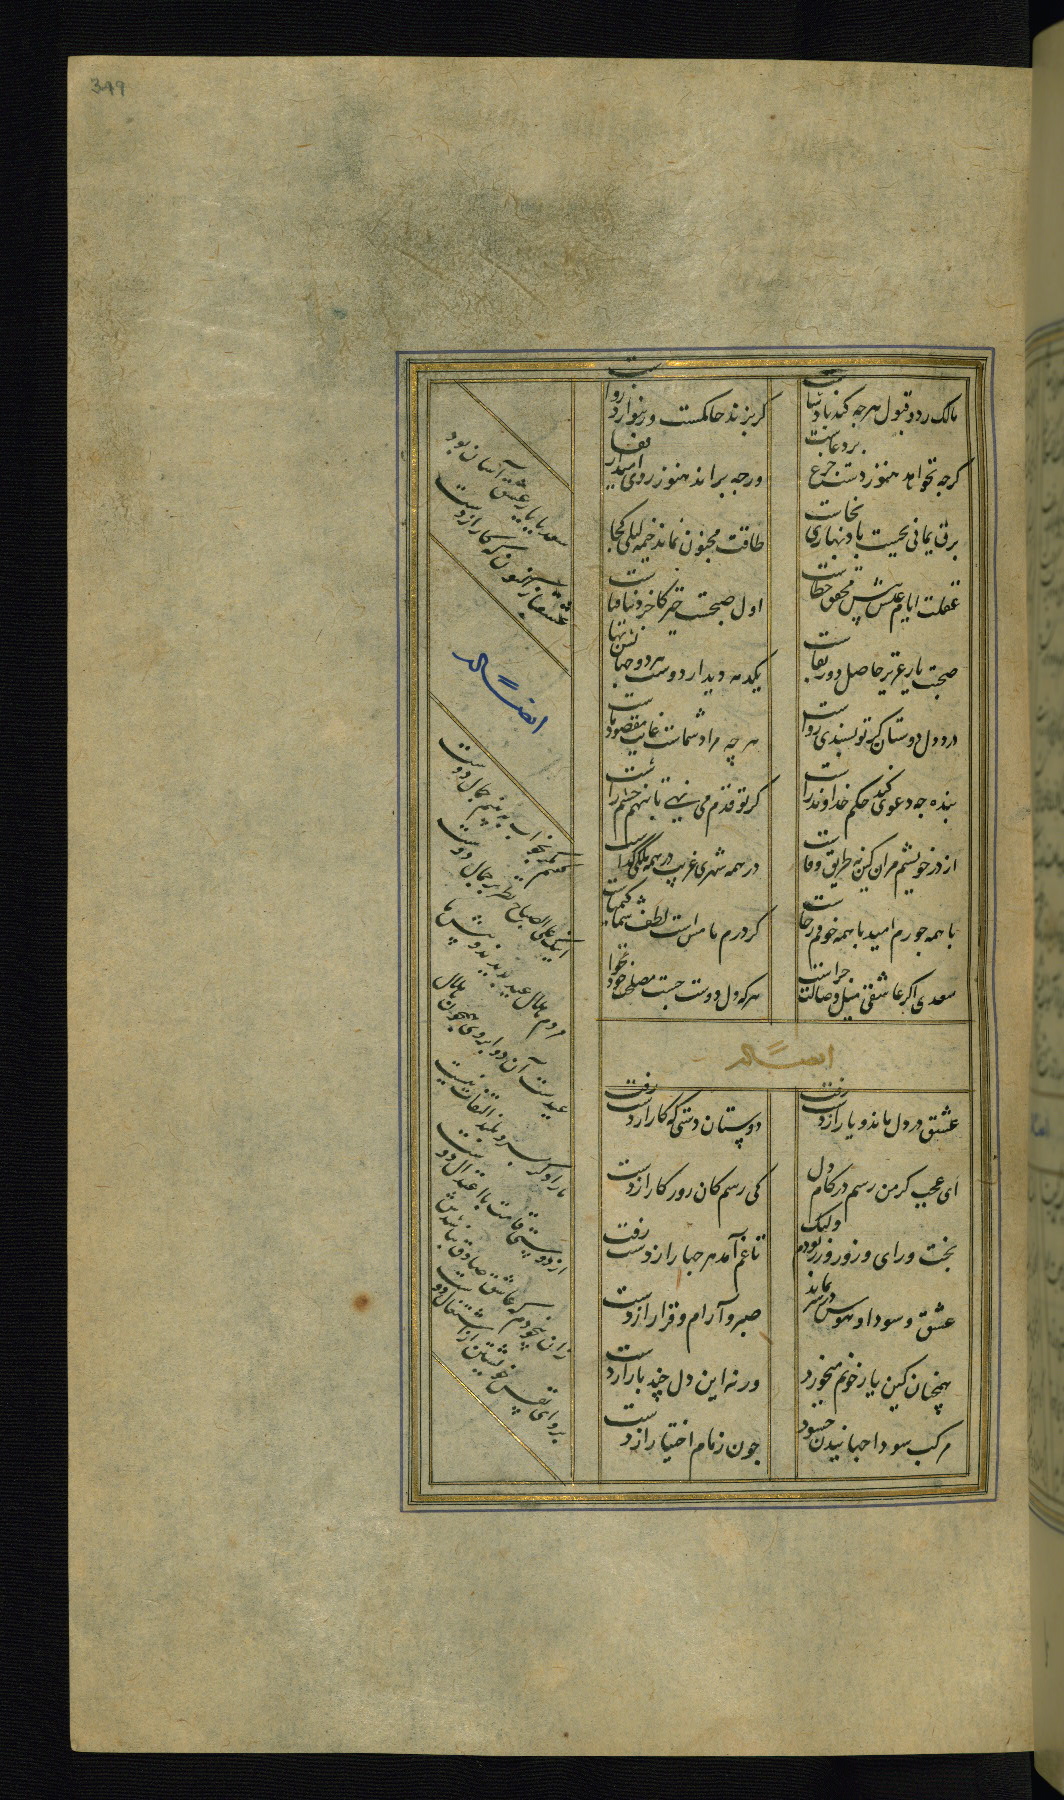 349
مالک رد و قبول هرچه کند پادشاست
کر بزند حاکمست ور بنوازد رواست
کرچه بخواند هنوز دست جزع بر دعاست
ورچه براند هنوز روی امید از قفاست
برق یمانی بجست باد بهاری نخاست
طاقت مجنون نماند خیمه لیلی کجاست
غفلت از ایام عشق پیش محقق خطاست
اول صبحست خیز کاخر دنیا فناست
صحبت یار عزیز حاصل دور بقاست
یکدمه دیدار دوست هر دو جهانش بهاست
درد دل دوستان کر تو پسندی رواست
هرچه مراد شماست غایت مقصود ماست
بنده چه دعوی کند حکم خداوند راست
کر تو قدم می نهی تا بنهم چشم راست
از در خویشم مران کین نه طریق وفاست
در همه شهری غریب در همه ملکی کداست
با همه جرمم امید با همه خوفم رجاست
کر درم ما مس است لطف شما کیمیاست
سعدی اکر عاشقی میل وصالت چراست
هرکه دل دوست جست مصلحت خود نخواست
ایضا له
عشق در دل ماند و یار از دست رفت
دوستان دستی که کار از دست رفت
ای عجب کر من رسم در کام دل
کی رسم کان روزکار از دست رفت
بخت و رای و زور و زر بودم ولیک
تا غم آمد هر چهار از دست رفت
عشق و سودا و هوس در سر بماند
صبر و آرام و قرار از دست رفت
همچنان کین یار خونم میخورد
ورنه این دل چند بار از دست
مرکب سودا جهانیدن چسود
چون زمام اختیار از دست
سعدیا با یار عشق آسان بود
عشق باز اکنون که کار از دست
ایضا له
کفتم مکر بخواب ببینم جمال دوست
اینک علی الصباح نظر بر جمال دوست
مردم هلال عید بدیدند و پیش ما
عیدست آن دو ابروی همچون هلال
ما را دکر بسرو بلند التفات نیست
از دوستی قامت با اعتدال دوست
زان بیخودم که عاشق صادق نباشدش
پروای نفس خویشتن از اشتغال دوست